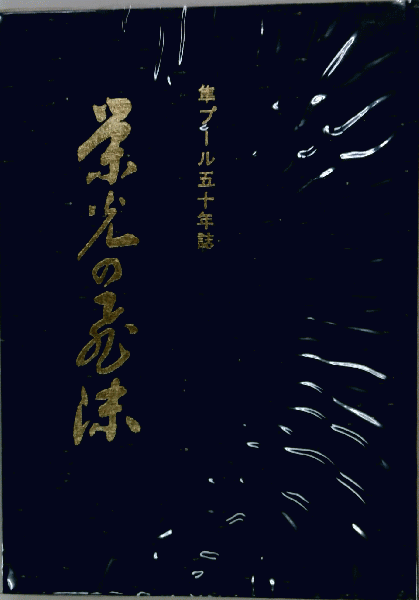 隼プール五十年誌
栄光の飛沫